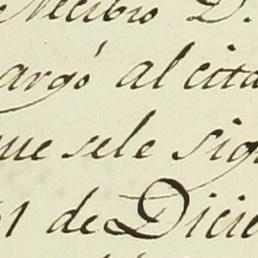 Recibio D.
argó al cita
que sele sig
31 de Dicie